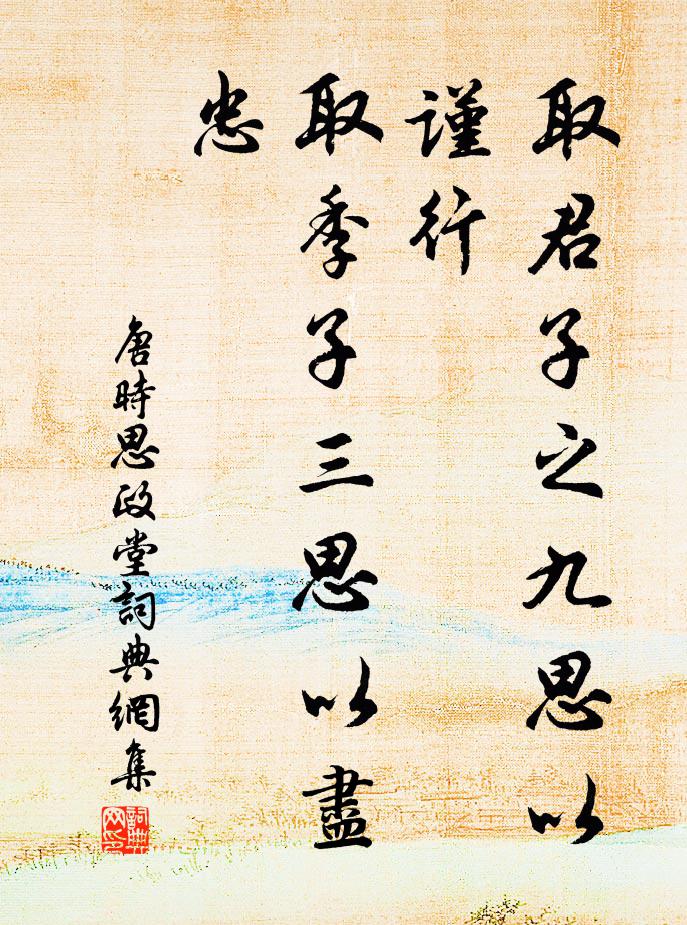 取君子之九思以
謹行
取季子三思以盡
忠
唐時思政堂詞典網集
詞典
网印